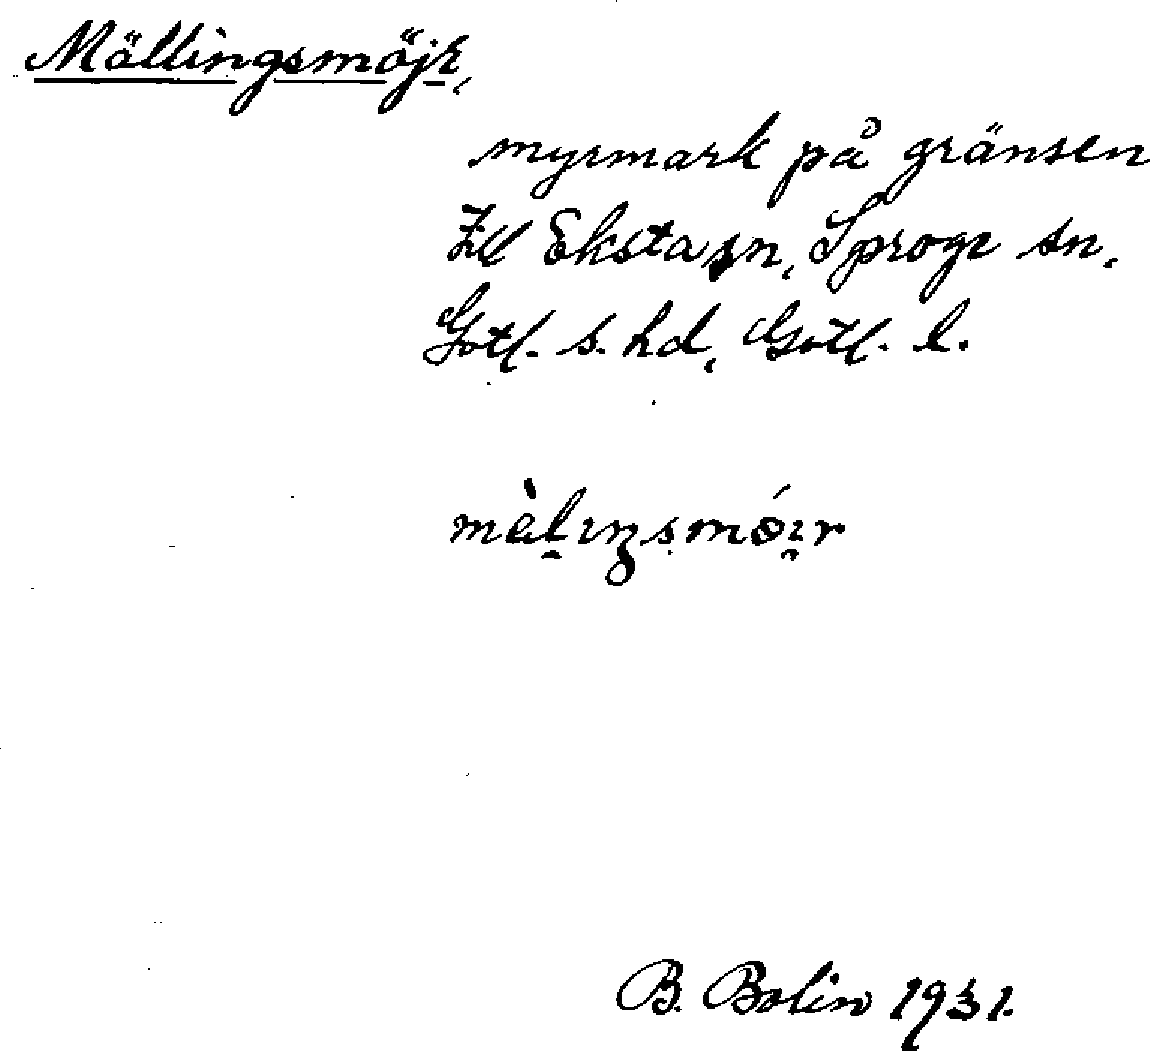 Mällingsmöjr,
myrmark på gränsen
till Eksta sn, Sproge sn,
Gotl. s. hd, Gotl. l.
mä̀lıŋsmóır
B. Bolin 1931.